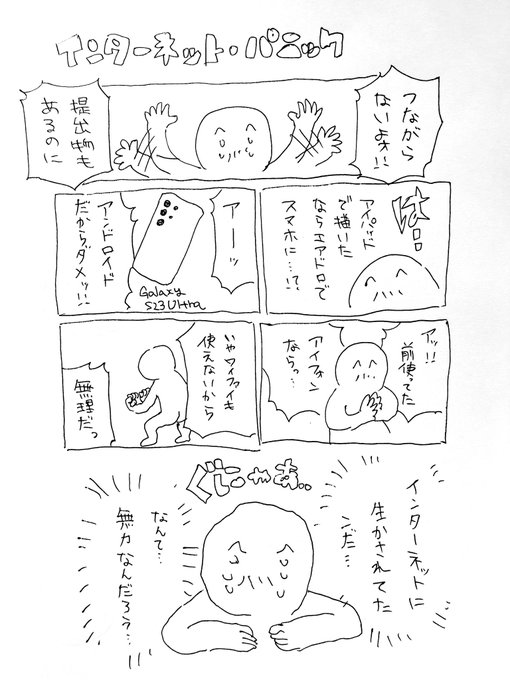 インターネット・パニック
つながら
ないよォ!!
提出物も
あるのに
は!!
アイパッド
で描いた
ならエアドロで
スマホに…!?
アーッ
Galaxy
S23 Ultra
アンドロイド
だからダメッ!!
アッ!!
前使ってた
アイフォン
ならっ…
いやワイファイも
使えないから
無理だっ
ぐにゃあ..
インターネットに
生かされてた
ンだ…
なんて…
無力なんだろう…